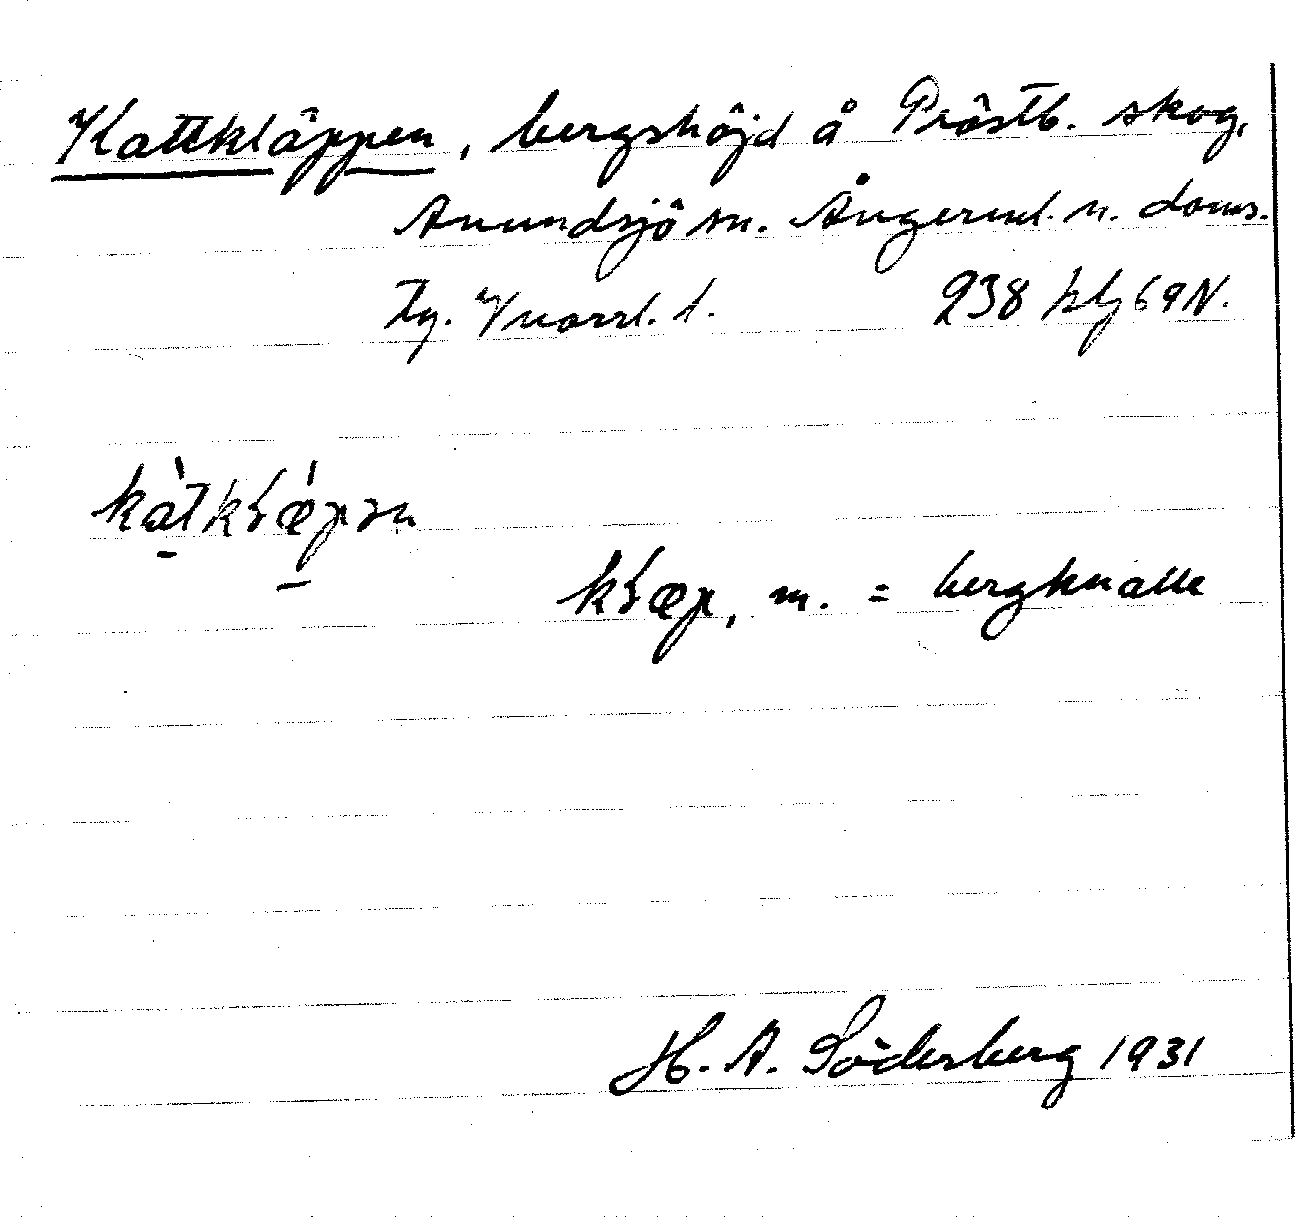 Kattkläppen, bergshöjd å Prästb. skog,
Anundsjö sn. Ångerml. n. doms.
tg. Vnorrl. l. 238 hlj 69N.
kàtkɽǽpən
kɽæp, m. = bergknalle
H. A. Söderberg 1931